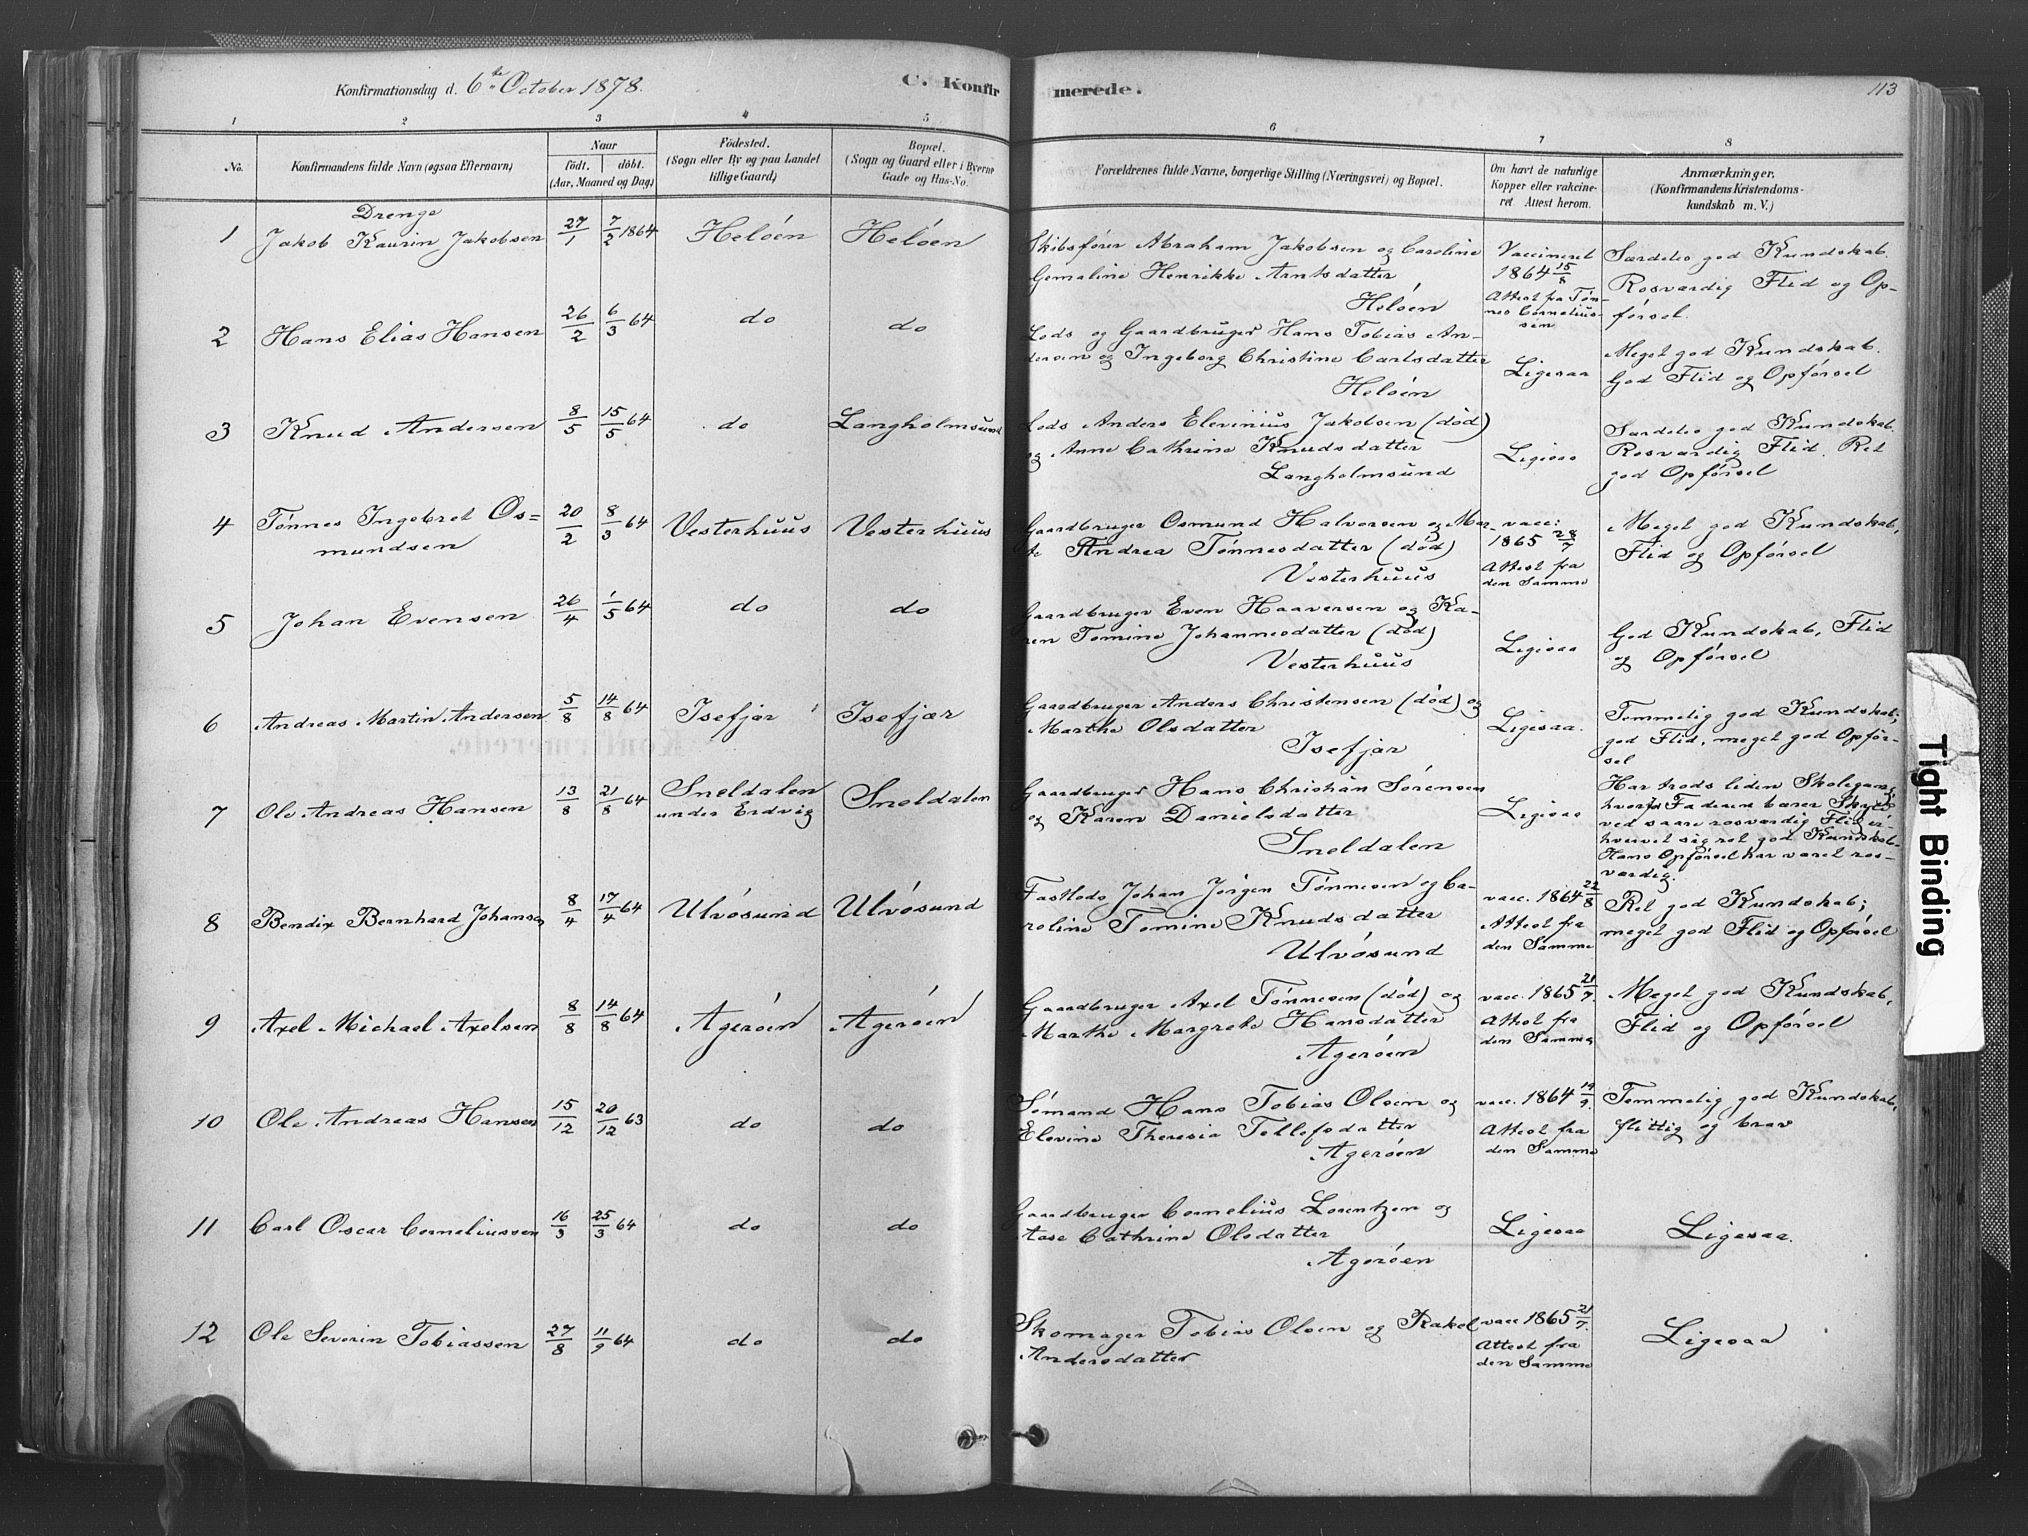 Konfirmationsdag d. 6te October 1878.
C. Konfirmerede.
113
1 2 3 4 5 6 7 8
No.
Konfirmandens fulde Navn (ogsaa Efternavn)
Naar
födt. döbt.
(Aar, Maaned og Dag)
Födested.
(Sogn eller By og paa Landet
tillige Gaard)
Bopæl.
(Sogn og Gaard eller i Byerne
Gade og Hus-No.
Forældrenes fulde Navne, borgerlige Stilling (Næringsvei) og Bopæl.
Om havt de naturlige
Kopper eller vakcine-
ret Attest herom.
Anmærkninger.
(Konfirmandens Kristendoms-
kundskab m. V.)
Drenge
1 Jakob Kaurin Jakobsen 27/1 7/2 1864 Helöen Helöen
Skibsfører Abraham Jakobsen og Caroline
Gemaline Henrikke Arntsdatter
Helöen
Vaccineret
1864 15/8
Attest fra Tøn-
nes Cornelius-
sen
Særdeles god Kundskab.
Rosværdig Flid og Op-
førsel.
2 Hans Elias Hansen 26/2 6/3 64 do do
Lods og Gaardbruger Hans Tobias An-
dersen og Ingeborg Christine Carlsdatter
Helöen
Ligesaa
Meget god Kundskab.
God Flid og Opførsel
3 Knud Andersen 8/5 15/5 64 do Langholmsund
Lods Anders Elevinius Jakobsen (død)
og Anne Cathrine Knudsdatter
Langholmsund
Ligesaa
Særdeles god Kundskab.
Rosværdig Flid. Ret
god Opførsel
4 Tønnes Ingebret Os=
mundsen 20/2 8/3 64 Vesterhuus Vesterhuus
Gaardbruger Osmund Halvorsen og Mar-
te Andrea Tønnesdatter (død)
Vesterhuus
vacc:
1865 28/7
Attest fra
den Samme
Meget god Kundskab,
Flid og Opførsel
5 Johan Evensen 26/4 1/5 64 do do
Gaardbruger Even Haaversen og Ka-
ren Tomine Johannesdatter (død)
Vesterhuus
Ligesaa
God Kundskab, Flid
og Opførsel
6 Andreas Martin Andersen 5/8 14/8 64 Isefjær Isefjær
Gaardbruger Anders Christensen (død) og
Marthe Olsdatter
Isefjær
Ligesaa.
Temmelig god Kundskab;
god Flid, meget god Opfør-
sel
7 Ole Andreas Hansen 13/8 21/8 64 Sneldalen
under Erdvig Sneldalen
Gaardbruger Hans Christian Sørensen
og Karen Danielsdatter
Sneldalen
Ligesaa
Har trods liden Skolegang
hvorfor Faderen bærer Skyld
ved saare rosværdig Flid er-
hvervet sig ret god Kundskab.
Hans Opførsel har været ros-
værdig.
8 Bendix Bernhard Johansen 8/4 17/4 64 Ulvøsund Ulvøsund
Fastlods Johan Jørgen Tønnesen og Ca-
roline Tomine Knudsdatter
Ulvøsund
vacc. 1864 22/8
Attest fra
den Samme
Ret god Kundskab;
meget god Flid og Opførsel
9 Axel Michael Axelsen 8/8 14/8 64 Agerøen Agerøen
Gaardbruger Axel Tønnesen (død) og
Marthe Margrete Hansdatter
Agerøen
vacc. 1865 21/7.
Attest fra
den Samme
Meget god Kundskab,
Flid og Opførsel
10 Ole Andreas Hansen 15/12 20/12 63 do do
Sømand Hans Tobias Olsen og
Elevine Theresia Tellefsdatter
Agerøen
vacc. 1864
Attest fra
den Samme
Temmelig god Kundskab,
flittig og brav
11 Carl Oscar Corneliussen 16/3 25/3 64 do do
Gaardbruger Cornelius Lorentzen og
Aase Cathrine Olsdatter
Agerøen
Ligesaa
Ligesaa.
12 Ole Severin Tobiassen 27/8 11/9 64 do do
Skomager Tobias Olsen og Rakel
Andersdatter
vacc 1865 21/7.
Attest fra
den Samme
Ligesaa
Tight Binding